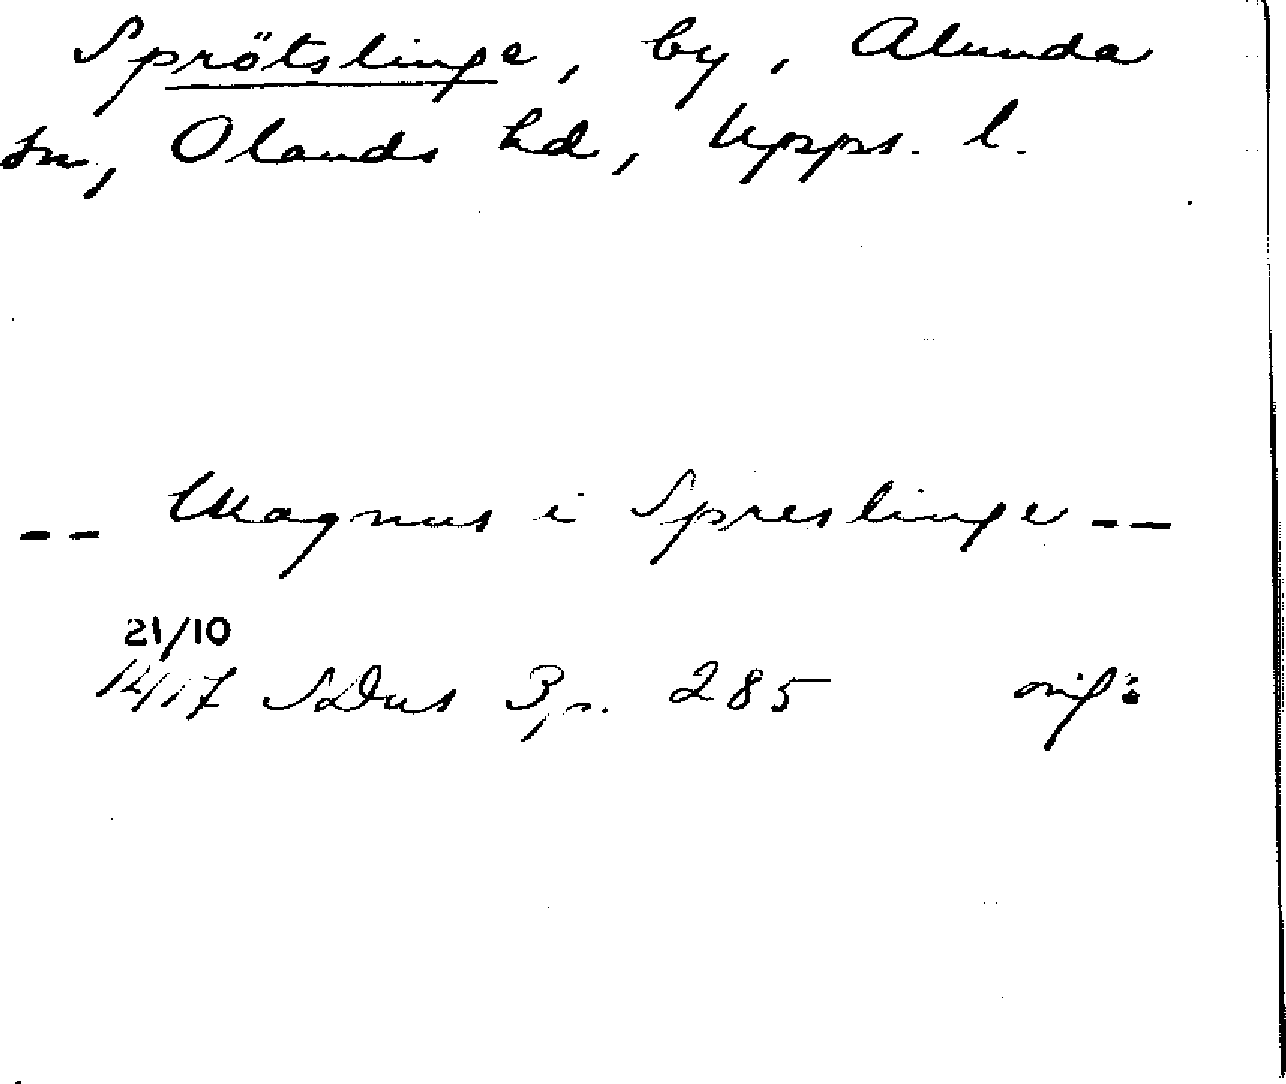 Sprötslinge, by, Alunda
sn, Olands hd, Upps. l.
-- Magnus i Spreslinge --
21/10
1417 SDns 3, p. 285 orig: